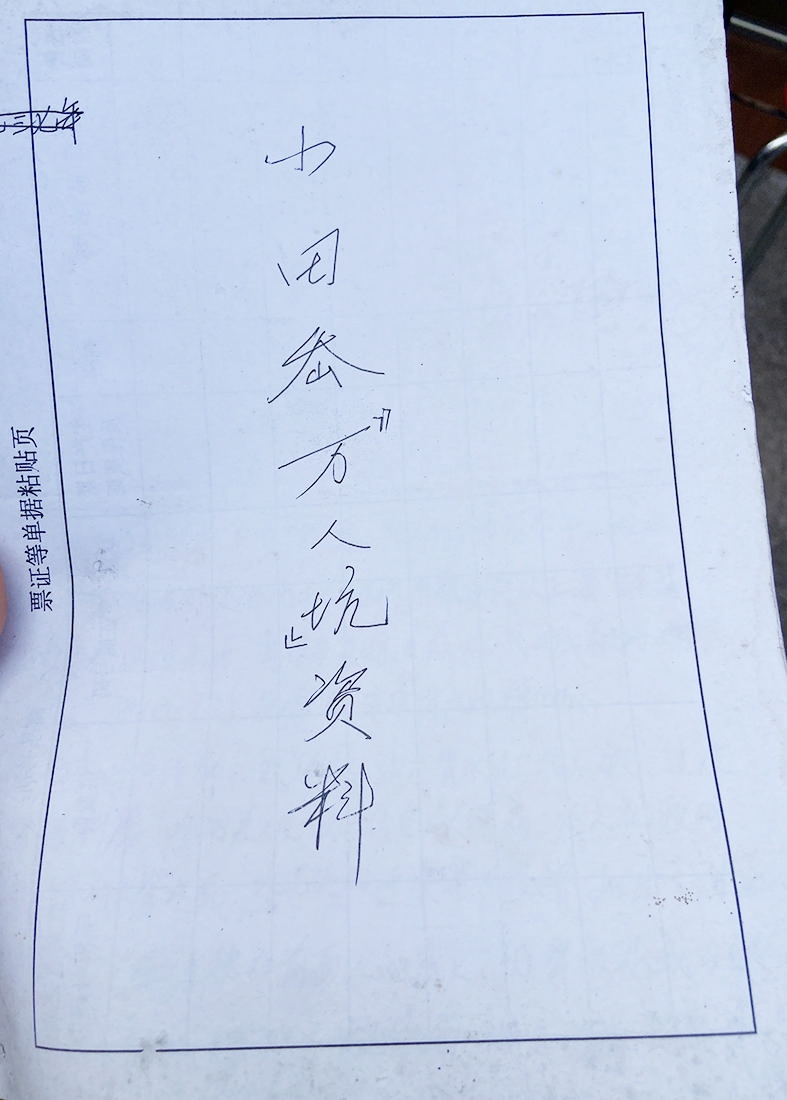 小田岙『万人坑』资料
票证等单据粘贴页